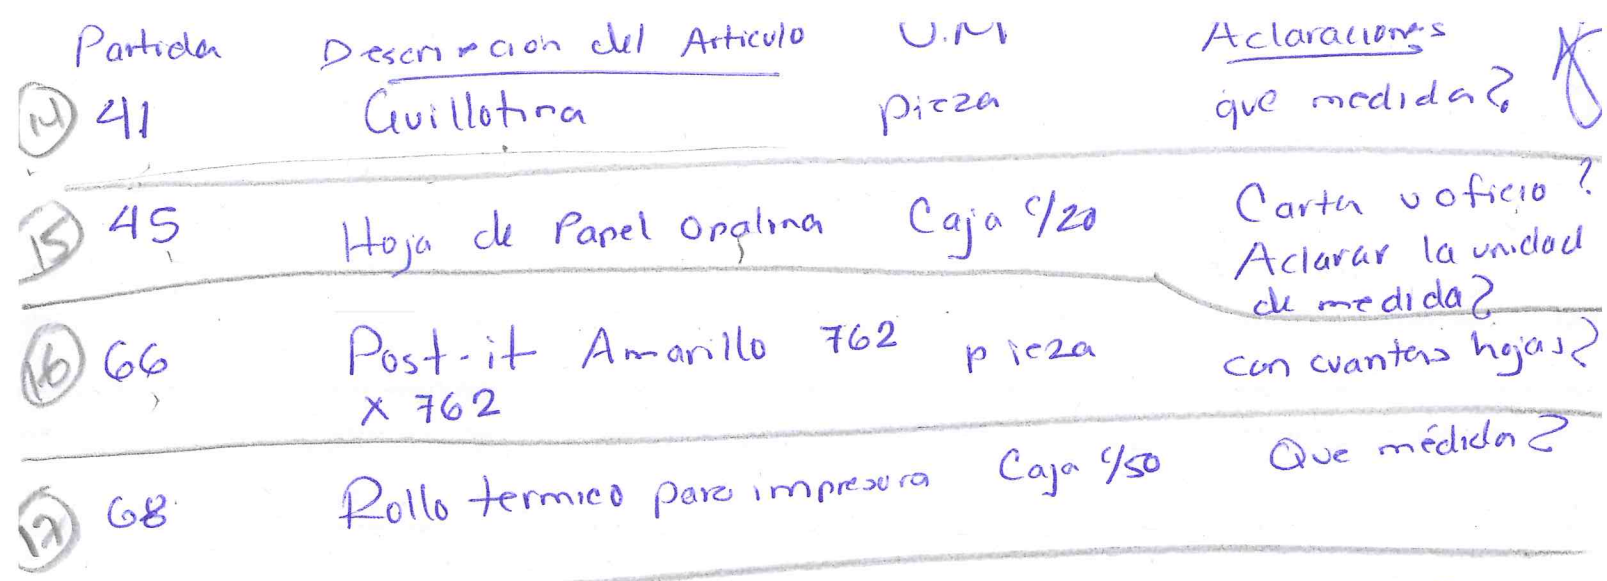 Partida Descripcion del Articulo U.M Aclaraciones
14 41 Guillotina pieza que medida?
15 45 Hoja de Papel Opalina Caja c/20 Carta u oficio?
Aclarar la unidad
de medida?
16 66 Post-it Amarillo 762 pieza con cuantas hojas?
X 762
17 68 Rollo termico para impresora Caja c/50 Que médida?